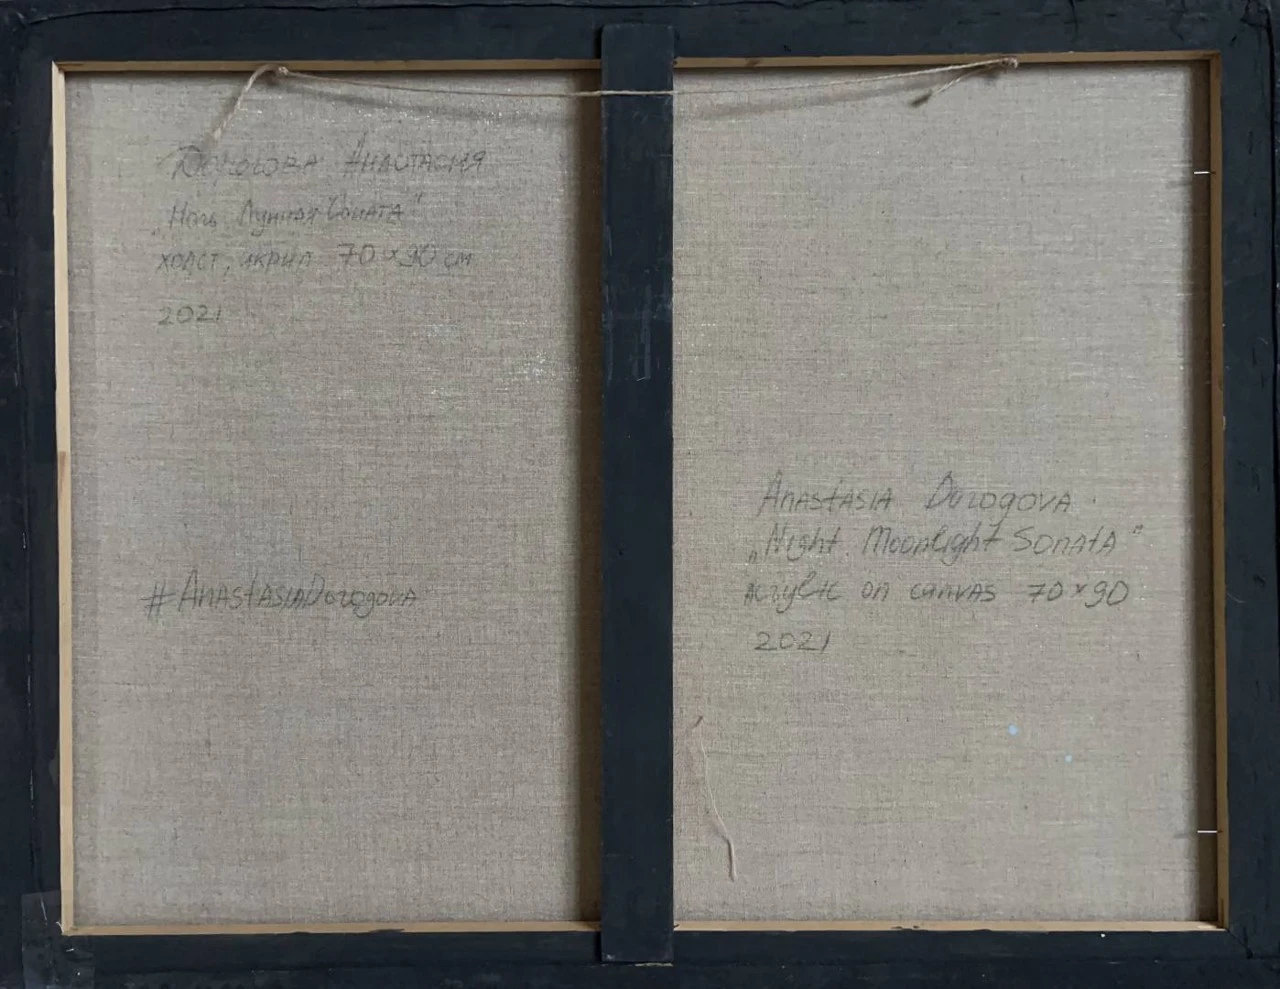 Дорогова Анастасия
„Ночь. Лунная Соната"
холст, акрил 70×90 см
2021
#AnastasiaDorogova
Anastasia Dorogova
„Night. Moonlight Sonata"
acrylic on canvas 70×90
2021